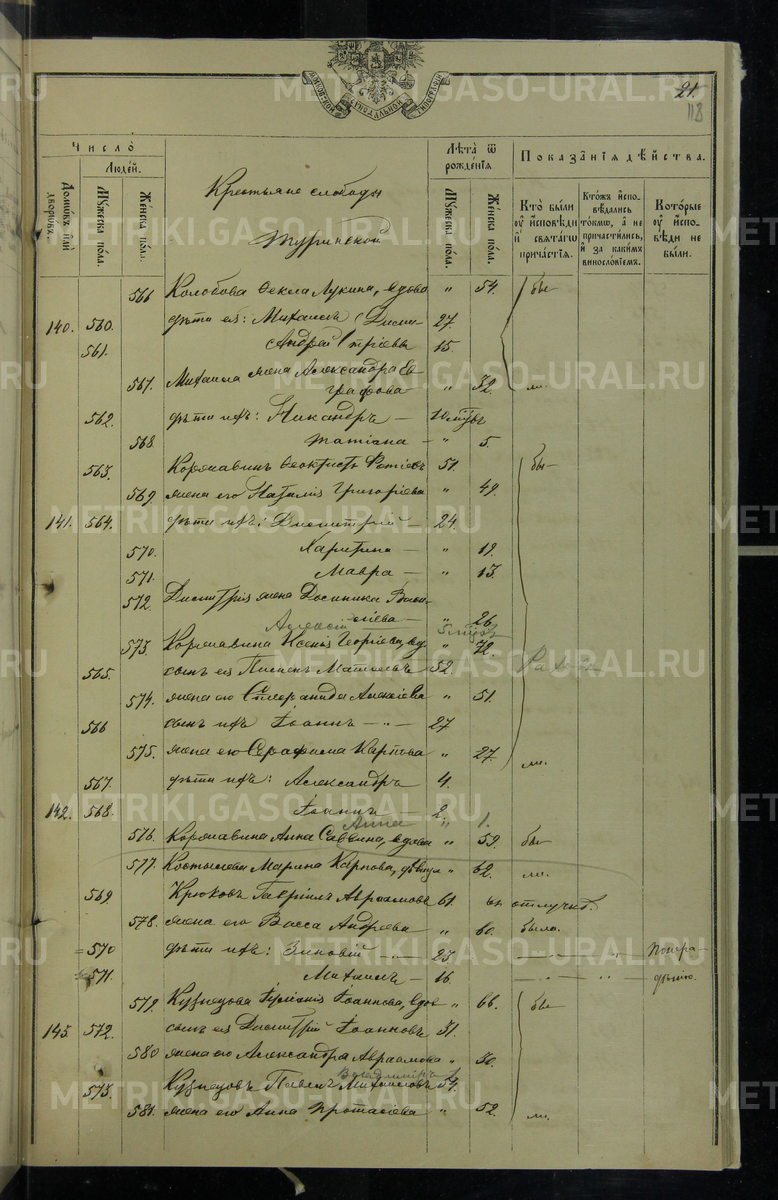 21.
118
Число̀
Людéй.
Домώвъ илѝ дворώвъ.
Мꙋжеска пóла.
Женска пóла.
Крестьяне слободы
Туринской
Лѣта̀ ѿ рождéнїѧ
Мꙋжеска пóла.
Жéнска пóла.
Показáнїѧ дѣ́йства.
Ктò бы́ли ᲂу҆ и҆́сповѣди и҆ ст҃áгѡ причáстїѧ.
Ктóжъ и҆спо- вѣ́дались тóкмѡ, а҆ не причасти́лись, и҆ за каки́мъ винослóвїемъ.
Котóрые ᲂу҆ и҆спо- вѣ́ди не бы́ли.
566 Колобова Ѳекла Лукина, вдова „ 54. бы-
140. 560. дѣти ея: Михаилъ Дими- 27.
561. Андрей тріевы 15.
567. Михаила жена Александра Ев-
графова „ 32. ли.
562. дѣти ихъ: Никандръ —
568 Татіана — „ 5.
563. Коржавинъ Ѳеоктистъ Фотіевъ 51. бы-
569. жена его Наталія Григоріева „ 49.
141. 564. дѣти ихъ: Димитрій — 24.
570. Харитина — „ 19.
571. Мавра — „ 13.
572. Димитрія жена Домника Васи-
ліева — „ 26.
573. Коржавина Ксенія Георгіева, вд. „ 72.
565. сынъ ея Пименъ Матѳіевъ 52.
574. жена его Гликерія Алексіева „ 51.
566 сынъ ихъ Іоаннъ — „ — 27
575. жена его Серафима Карпова „ 27. ли.
567. дѣти ихъ: Александръ 4.
142. 568. Іоаннъ — 2.
Анна „ 1.
576. Коржавина Анна Саввина, вдова „ 59. бы-
577. Костылева Марина Карпова, дѣвица „ 62. ли.
569 Крюковъ Гавріилъ Авраамовъ 61. въ отлучкѣ.
578. жена его Васса Андреева „ 60. была.
570 дѣти ихъ: Зиновій — „ — 23. — „ — „ По нера-
571. Михаилъ — 16. — „ — „ — дѣнію.
579. Кузнецова Іуліанія Іоаннова, вдов. „ 66. бы-
143. 572. сынъ ея Димитрій Іоанновъ 31.
580 жена его Александра Авраамова „ 30.
Владимиръ
573. Кузнецовъ Павелъ Михаиловъ 54.
581. жена его Анна Протасіева „ 52. ли.
METRIKI.GASO-URAL.RU